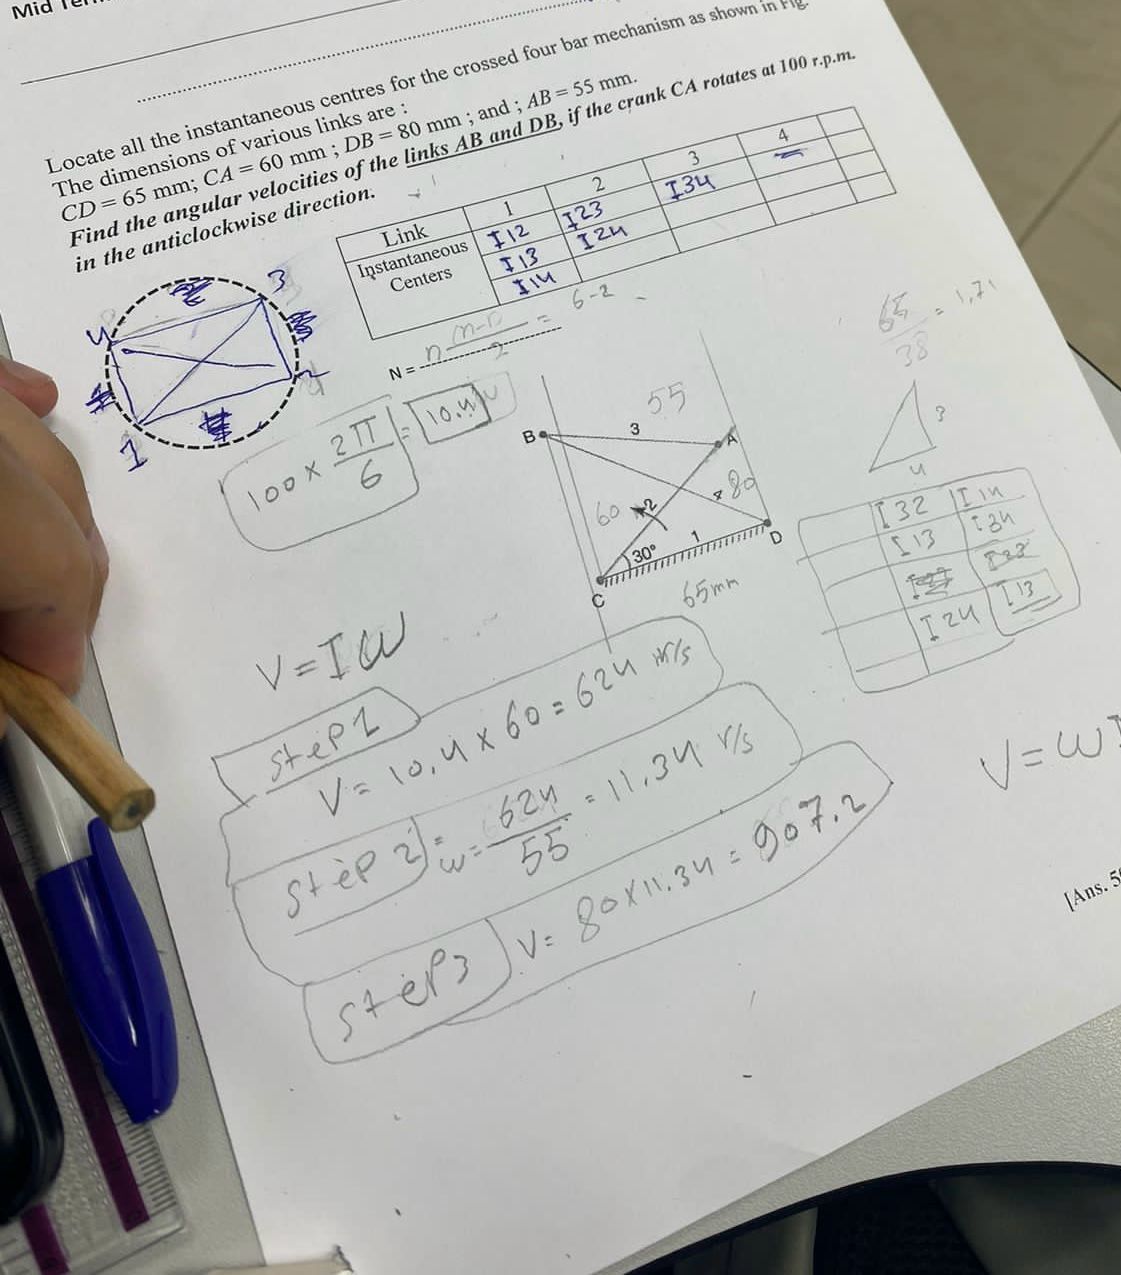 Mid
Locate all the instantaneous centres for the crossed four bar mechanism as shown in Fig.
The dimensions of various links are :
CD = 65 mm; CA = 60 mm ; DB = 80 mm ; and ; AB = 55 mm.
Find the angular velocities of the links AB and DB, if the crank CA rotates at 100 r.p.m.
in the anticlockwise direction.
Link 1 2 3 4
Instantaneous Centers
I12 I23 I34
I13 I24
I14
N = n (n-1) / 2 = 6-2
4 3
1 2
100 × 2π / 6 = 10.4
65 / 38 = 1,71
3
4
55
B 3 A
60 2 4 80
30° 1 D
C 65mm
I32 I14
I13 I34
I24 I13
V = I W
Step 1
V = 10,4 × 60 = 624
Step 2 w = 624 / 55 = 11.34 r/s
Step 3 V = 80×11.34 = 907.2
V = W
[Ans.